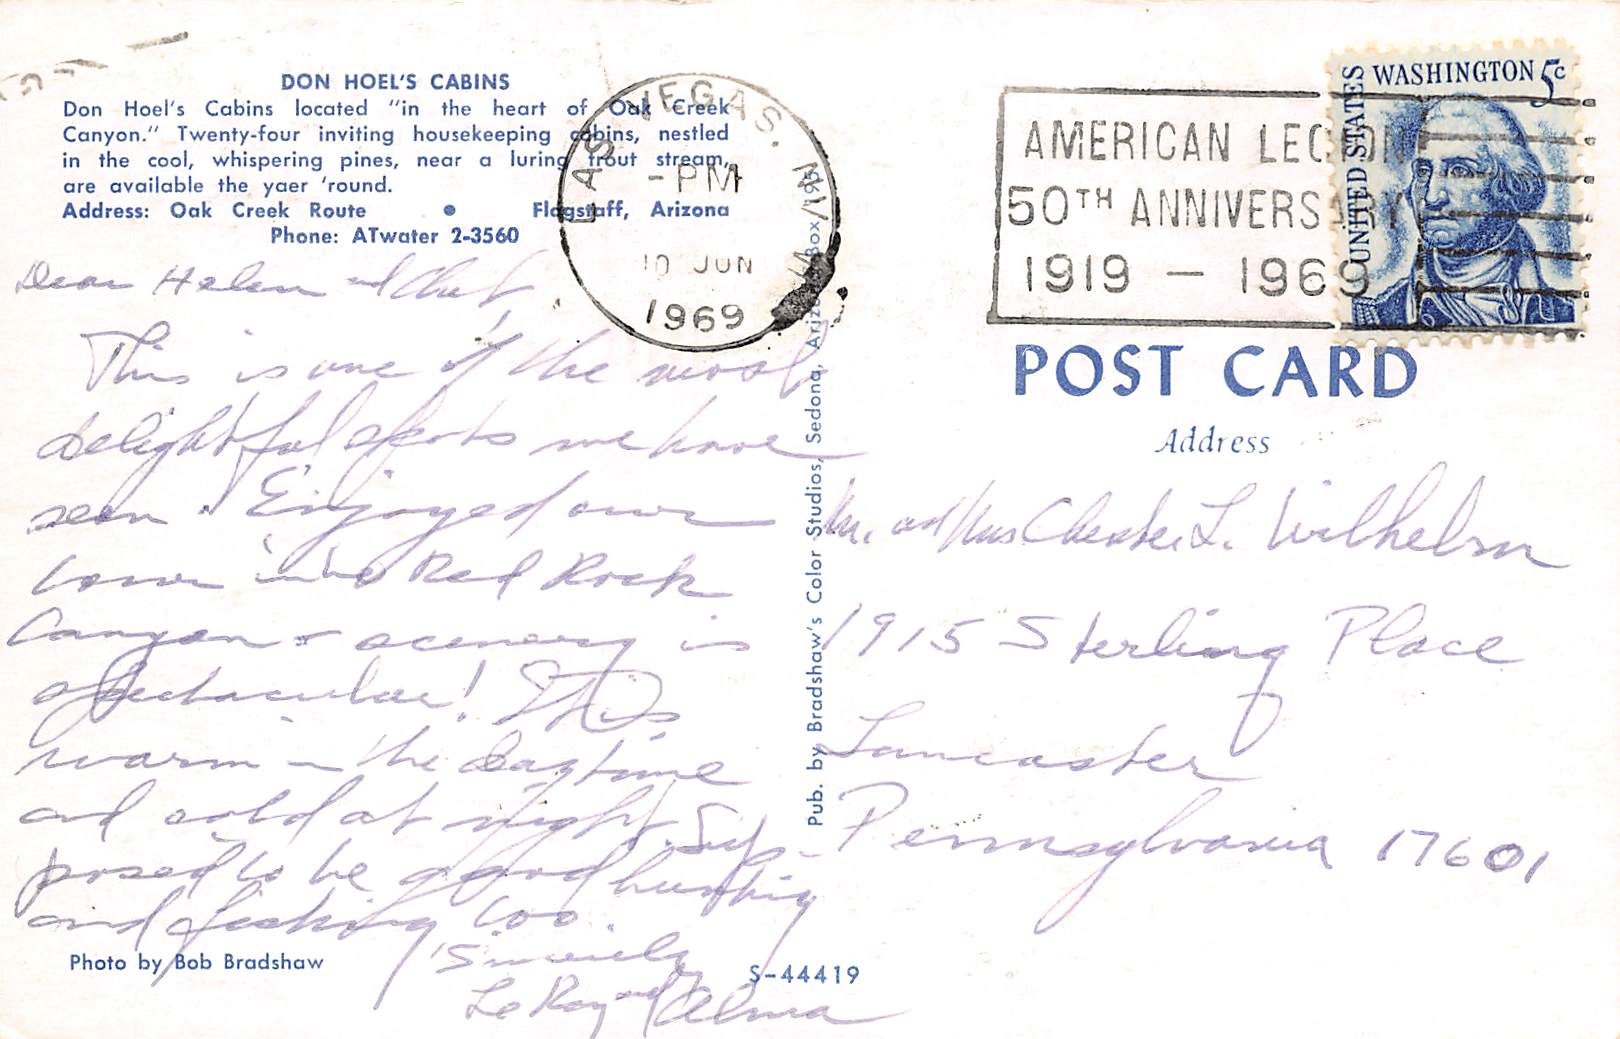 DON HOEL'S CABINS
Don Hoel's Cabins located "in the heart of Oak Creek
Canyon." Twenty-four inviting housekeeping cabins, nestled
in the cool, whispering pines, near a luring trout stream,
are available the yaer 'round.
Address: Oak Creek Route • Flagstaff, Arizona
Phone: ATwater 2-3560
Dear Helen and Chet,
This is one of the most
delightful spots we have
seen. Enjoyed our
tour into Red Rock
Canyon - scenery is
spectacular! It is
warm in the daytime
and cold at night. Sup-
posed to be good hunting
and fishing too.
Sincerely
LeRoy and Alma
Photo by Bob Bradshaw
S-44419
Pub. by Bradshaw's Color Studios, Sedona, Ariz. Box 195
LAS VEGAS, N
-PM
10 JUN
1969
AMERICAN LEGION
50TH ANNIVERSARY
1919 — 1969
UNITED STATES
WASHINGTON 5c
POST CARD
Address
Mr. and Mrs Chester L. Wilhelm
1915 Sterling Place
Lancaster
Pennsylvania 17601